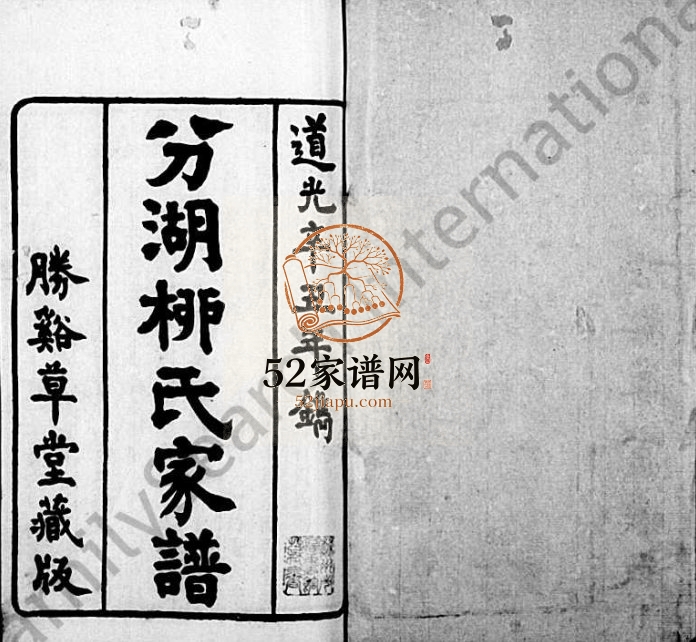 道光辛丑年鐫
分湖柳氏家譜
勝谿草堂藏版
52家谱网
52jiapu.com
FamilySearch International